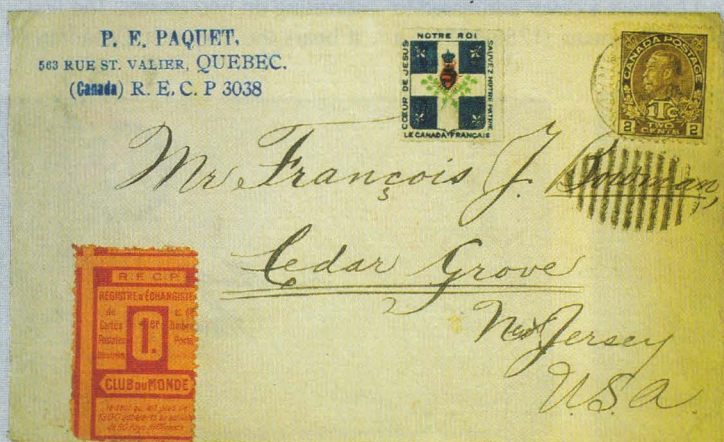 P. E. PAQUET.
563 RUE ST. VALIER, QUEBEC.
(Canada) R. E. C. P 3038
NOTRE ROI
COEUR DE JESUS
SAUVEZ NOTRE PATRIE
LE CANADA FRANÇAIS
CANADA POSTAGE
1TC
2 CENTS 2
Mr. François J.
Cedar Grove
New Jersey
U.S.A.
R.E.C.P.
REGISTRE D'ÉCHANGISTE
de
Cartes
Postales
1er
O.
CLUB DU MONDE